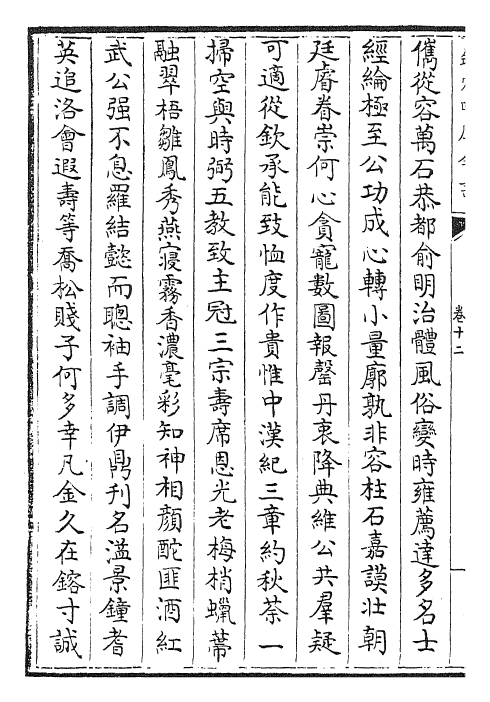 卷十二
儁從容萬石恭都俞明治體風俗變時雍薦達多名士
經綸極至公功成心轉小量廓孰非容柱石嘉謨壯朝
廷睿眷崇何心貪寵數圖報罄丹衷降典維公共羣疑
可適從欽承能致恤度作貴惟中漢紀三章約秋荼一
掃空與時弼五教致主冠三宗壽席恩光老梅梢蠟蔕
融翠梧雛鳳秀燕寢霧香濃毫彩知神相顔酡匪酒紅
武公强不息羅結懿而聰袖手調伊鼎刋名溢景鐘耆
英追洛會遐壽等喬松賤子何多幸凡金久在鎔寸誠